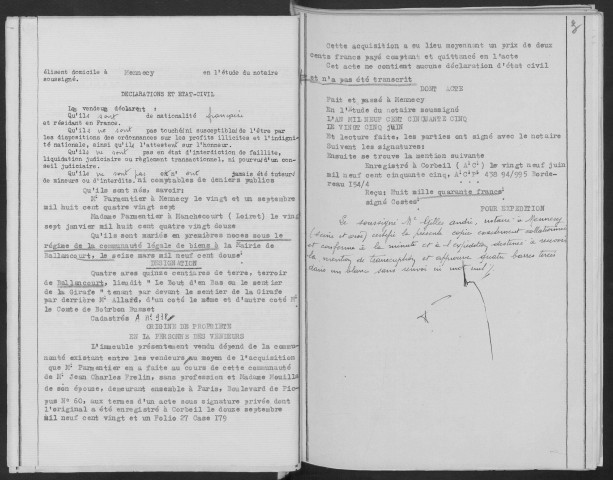 élisant domicile à Mennecy en l'étude du notaire
soussigné.
DECLARATIONS ET ETAT-CIVIL
Les vendeurs déclarent :
Qu'ils sont de nationalité française
et résident en France.
Qu'ils ne sont pas touchés ni susceptibles d'être par
les dispositions des ordonnances sur les profits illicites et l'indigni-
té nationale, ainsi qu'ils l'attestent sur l'honneur.
Qu'ils ne sont pas en état d'interdiction de faillite,
liquidation judiciaire ou règlement transactionnel, ni pourvu d'un con-
seil judiciaire.
Qu'ils ne sont pas et n'ont jamais été tuteurs
de mineurs ou d'interdits, ni comptables de deniers publics
Qu'ils sont nés, savoir:
Mr Parmentier à Mennecy le vingt et un septembre
mil huit cent quatre vingt sept
Madame Parmentier à Manchecourt (Loiret) le vingt
sept janvier mil huit cent quatre vingt douze
Qu'ils sont mariés en premières noces sous le
régime de la communauté légale de biens à la Mairie de
Ballancourt, le seize mars mil neuf cent douze
DESIGNATION
Quatre ares quinze centiares de terre, terroir
de Ballancourt, lieudit " Le Bout d'en Bas ou le sentier
de la Girafe " tenant par devant le sentier de la Girafe
par derrière Mr Allard, d'un coté le même et d'autre coté Mr
le Comte de Bourbon Busset
Cadastrée A N° 918
ORIGINE DE PROPRIETE
EN LA PERSONNE DES VENDEURS
L'immeuble présentement vendu dépend de la commu-
nauté existant entre les vendeurs au moyen de l'acquisition
que Mr Parmentier en a faite au cours de cette communauté
de Mr Jean Charles Prelin, sans profession et Madame
de son épouse, demeurant ensemble à Paris, Boulevard de Pic-
pus N° 60, aux termes d'un acte sous signature privée dont
l'original a été enregistré à Corbeil le douze septembre
mil neuf cent vingt et un Folio 27 Case 179
Cette acquisition a eu lieu moyennant un prix de deux
cents francs payé comptant et quittancé en l'acte
Cet acte ne contient aucune déclaration d'état civil
et n'a pas été transcrit
DONT ACTE
Fait et passé à Mennecy
En l'étude du notaire soussigné
L'AN MIL NEUF CENT CINQUANTE CINQ
LE VINGT CINQ JUIN
Et lecture faite, les parties ont signé avec le notaire
Suivent les signatures:
Ensuite se trouve la mention suivante
Enregistré à Corbeil (A'C') le vingt neuf juin
mil neuf cent cinquante cinq, A'C'P° 438 94/995 Borde-
reau 154/4
Reçu: Huit mille quarante francs
signé Costes
POUR EXPEDITION
Le soussigné Mr Gilles andré, notaire à Mennecy
(Seine et Oise) certifie la présente copie exactement collationnée
et conforme à la minute et à l'expédition destinée à recevoir
la mention de transcription et approuve quatre barres tirées
dans un blanc sans renvoi ni mot nul.